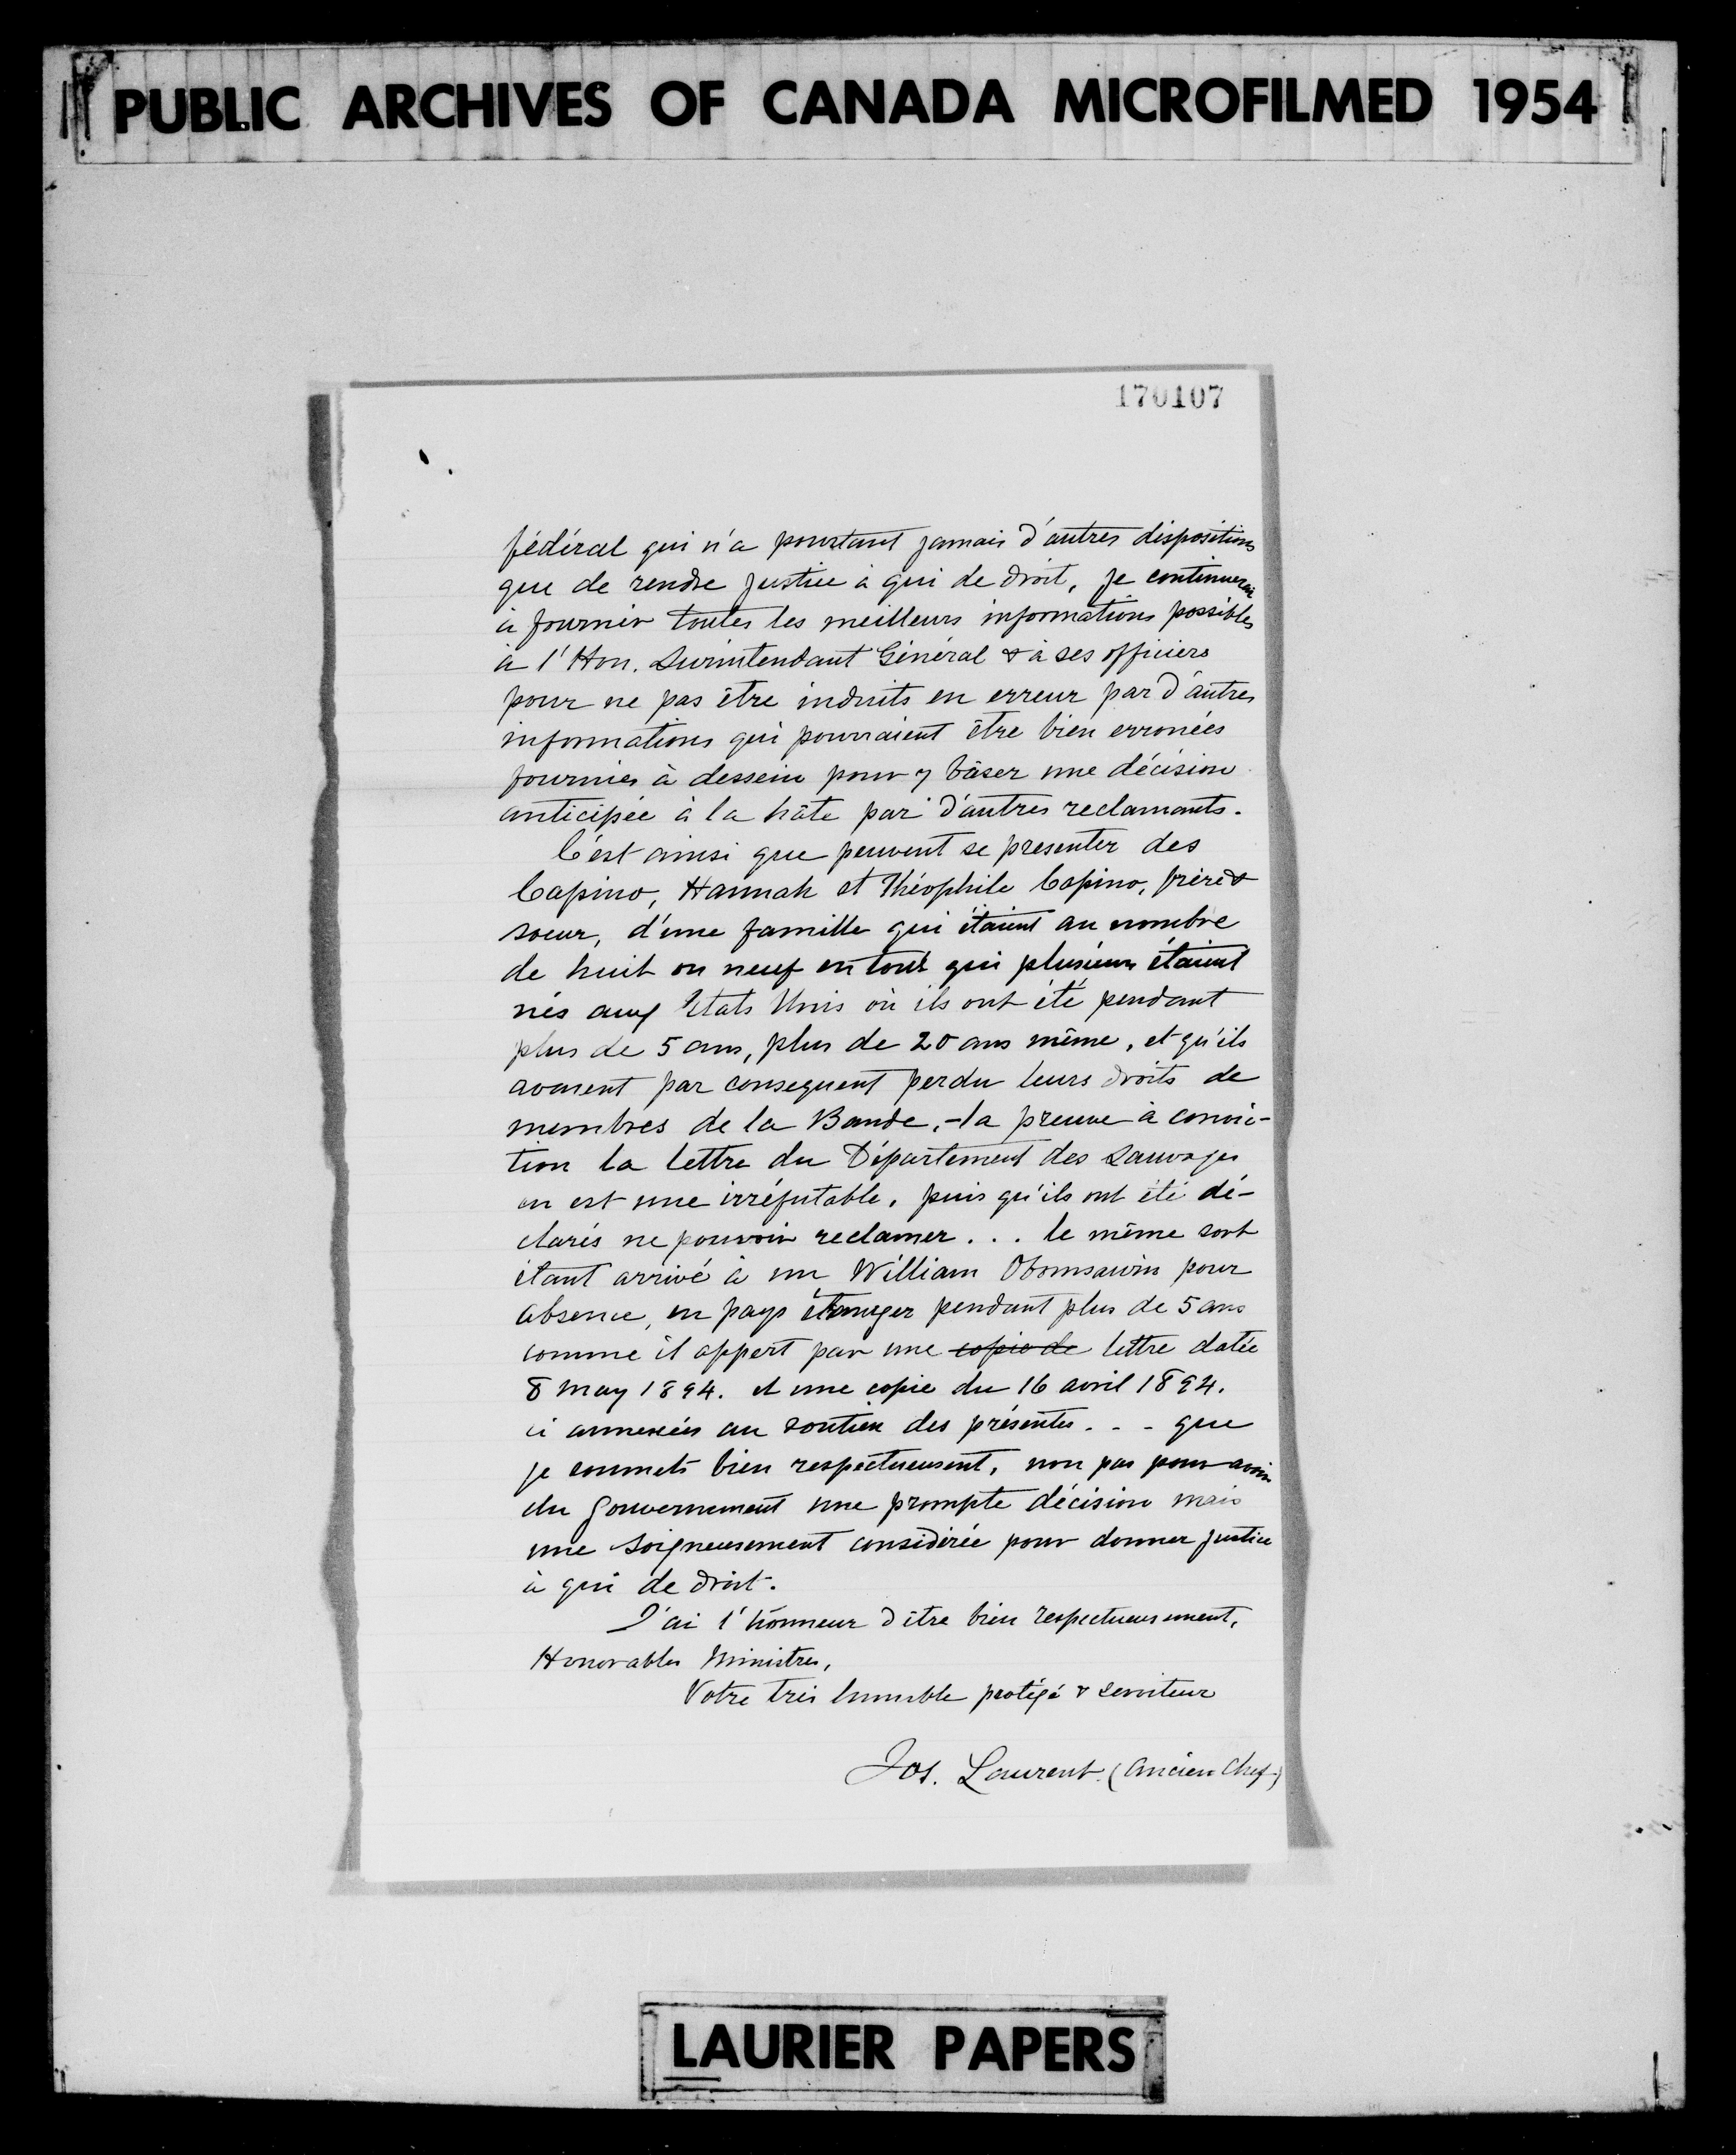 PUBLIC ARCHIVES OF CANADA MICROFILMED 1954
170107
fédéral qui n'a pourtant jamais d'autres dispositions
que de rendre justice à qui de droit, je continuerai
à fournir toutes les meilleurs informations possibles
à l'Hon. Surintendant Général & à ses officiers
pour ne pas être induits en erreur par d'autres
informations qui pourraient être bien erronées
fournies à dessein pour y bâser une décision
anticipée à la hâte par d'autres reclamants.
C'est ainsi que peuvent se presenter des
Capino, Hannah et Théophile Capino, frère &
soeur, d'une famille qui étaient au nombre
de huit ou neuf en tout qui plusieurs étaient
nés aux Etats Unis où ils ont été pendant
plus de 5 ans, plus de 20 ans même, et qu'ils
avaient par consequent perdu leurs droits de
membres de la Bande, - la preuve à convic-
tion la lettre du Département des Sauvages
en est une irréfutable, puis qu'ils ont été dé-
clarés ne pouvoir reclamer . . . le même sort
étant arrivé à un William Obomsawin pour
absence, en pays étranger pendant plus de 5 ans
comme il appert par une copie de lettre datée
8 May 1894. et une copie du 16 avril 1894.
ci annexées au soutien des présentes . . - que
je soumets bien respectueusement, non pas pour avoir
du Gouvernement une prompte décision mais
une soigneusement considérée pour donner justice
à qui de droit.
J'ai l'honneur d'être bien respectueusement,
Honorables Ministres,
Votre très humble protégé & serviteur
Jos. Laurent. (Ancien Chef)
LAURIER PAPERS